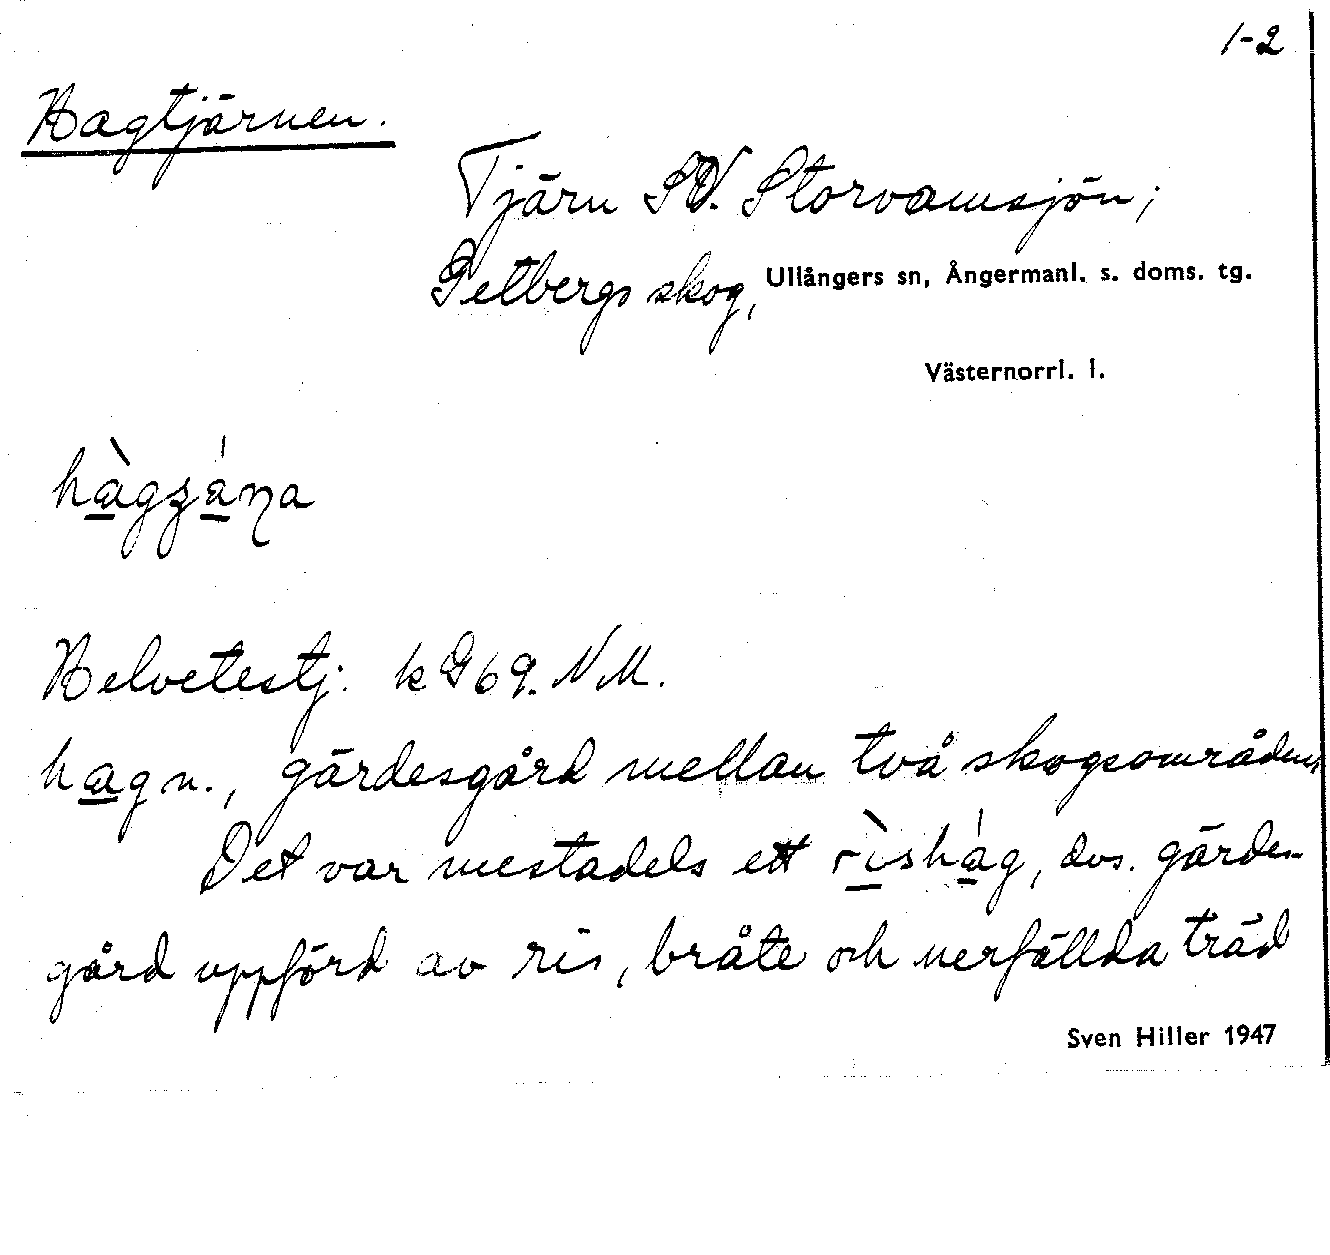 1-2
Hagtjärnen.
Tjärn SV. Storvamsjön;
Getbergs skog, Ullångers sn, Ångermanl. s. doms. tg.
Västernorrl. l.
hàgʒána
Helvetestj. k G69. NM.
hag n., gärdesgård mellan två skogsområden.
Det var mestadels ett rìshág, dvs. gärdes-
gård uppförd av ris, bråte och nerfällda träd
Sven Hiller 1947